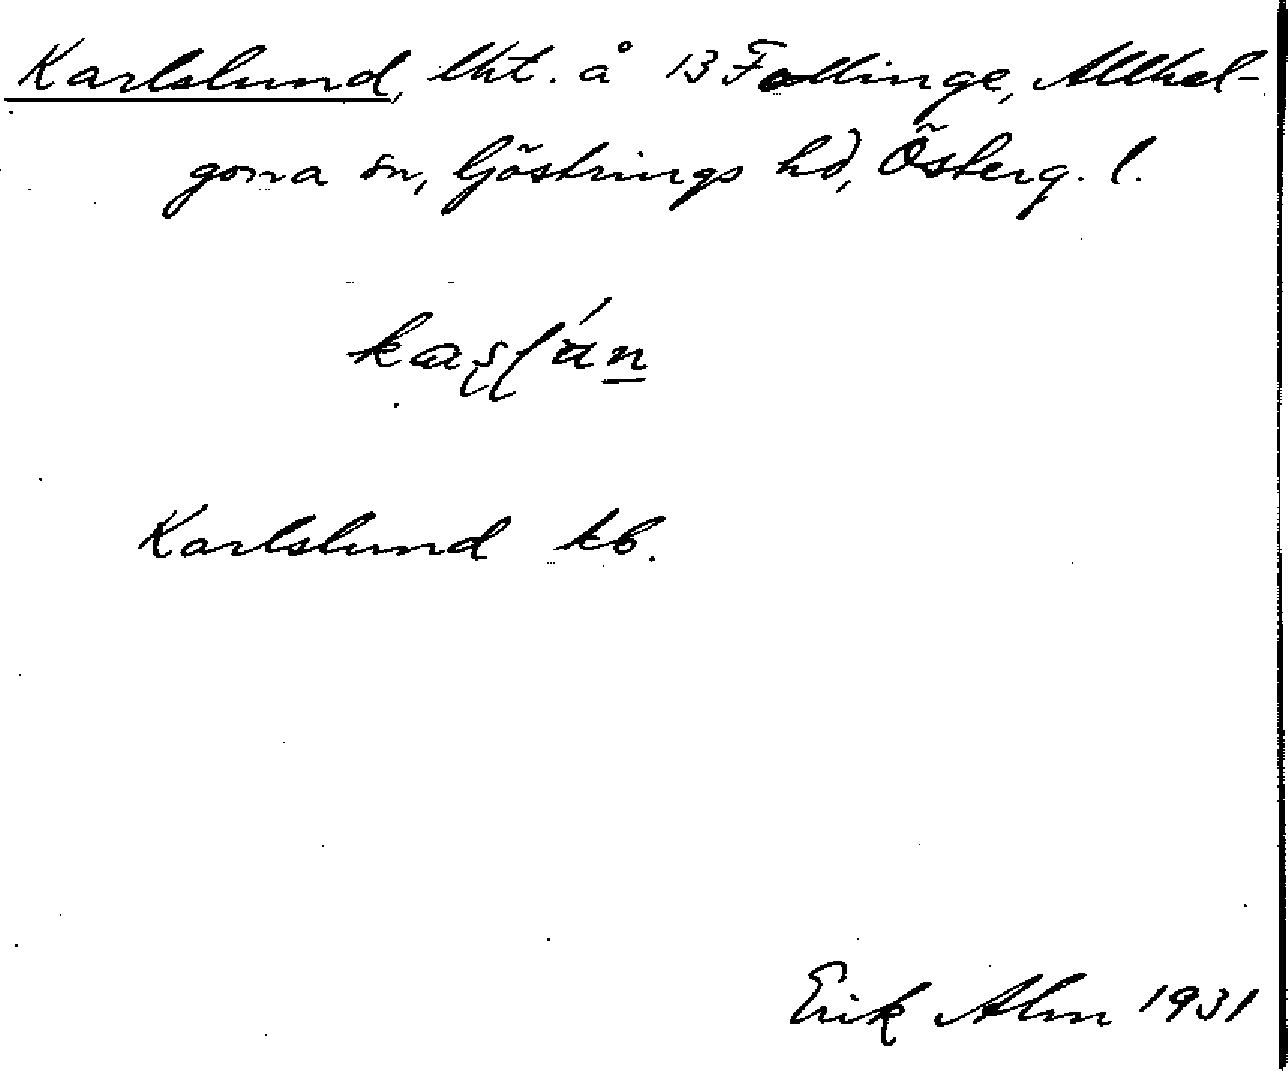 Karlslund, lht. å 13 Follinge, Allhel-
gona sn, Göstrings hd, Österg. l.
Karlslund kb.
Erik Alm 1931